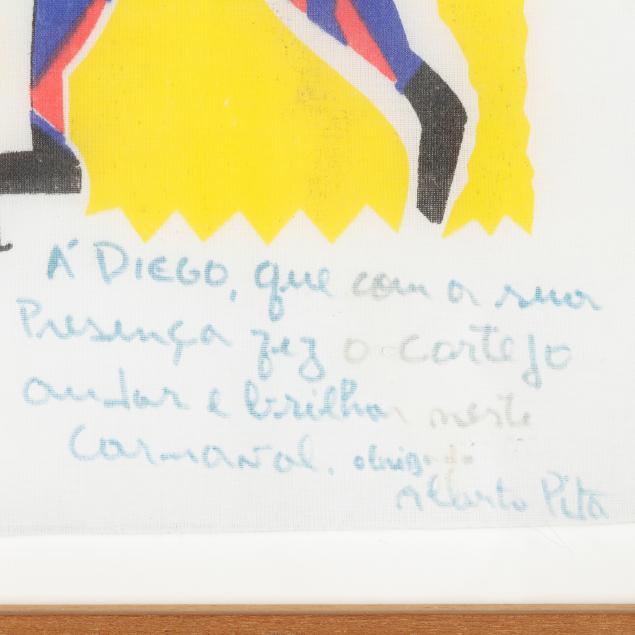 A' DIEGO, que com a sua
Presença fez o cortejo
andar e brilhar neste
Carnaval. obrigado
Alberto Pita